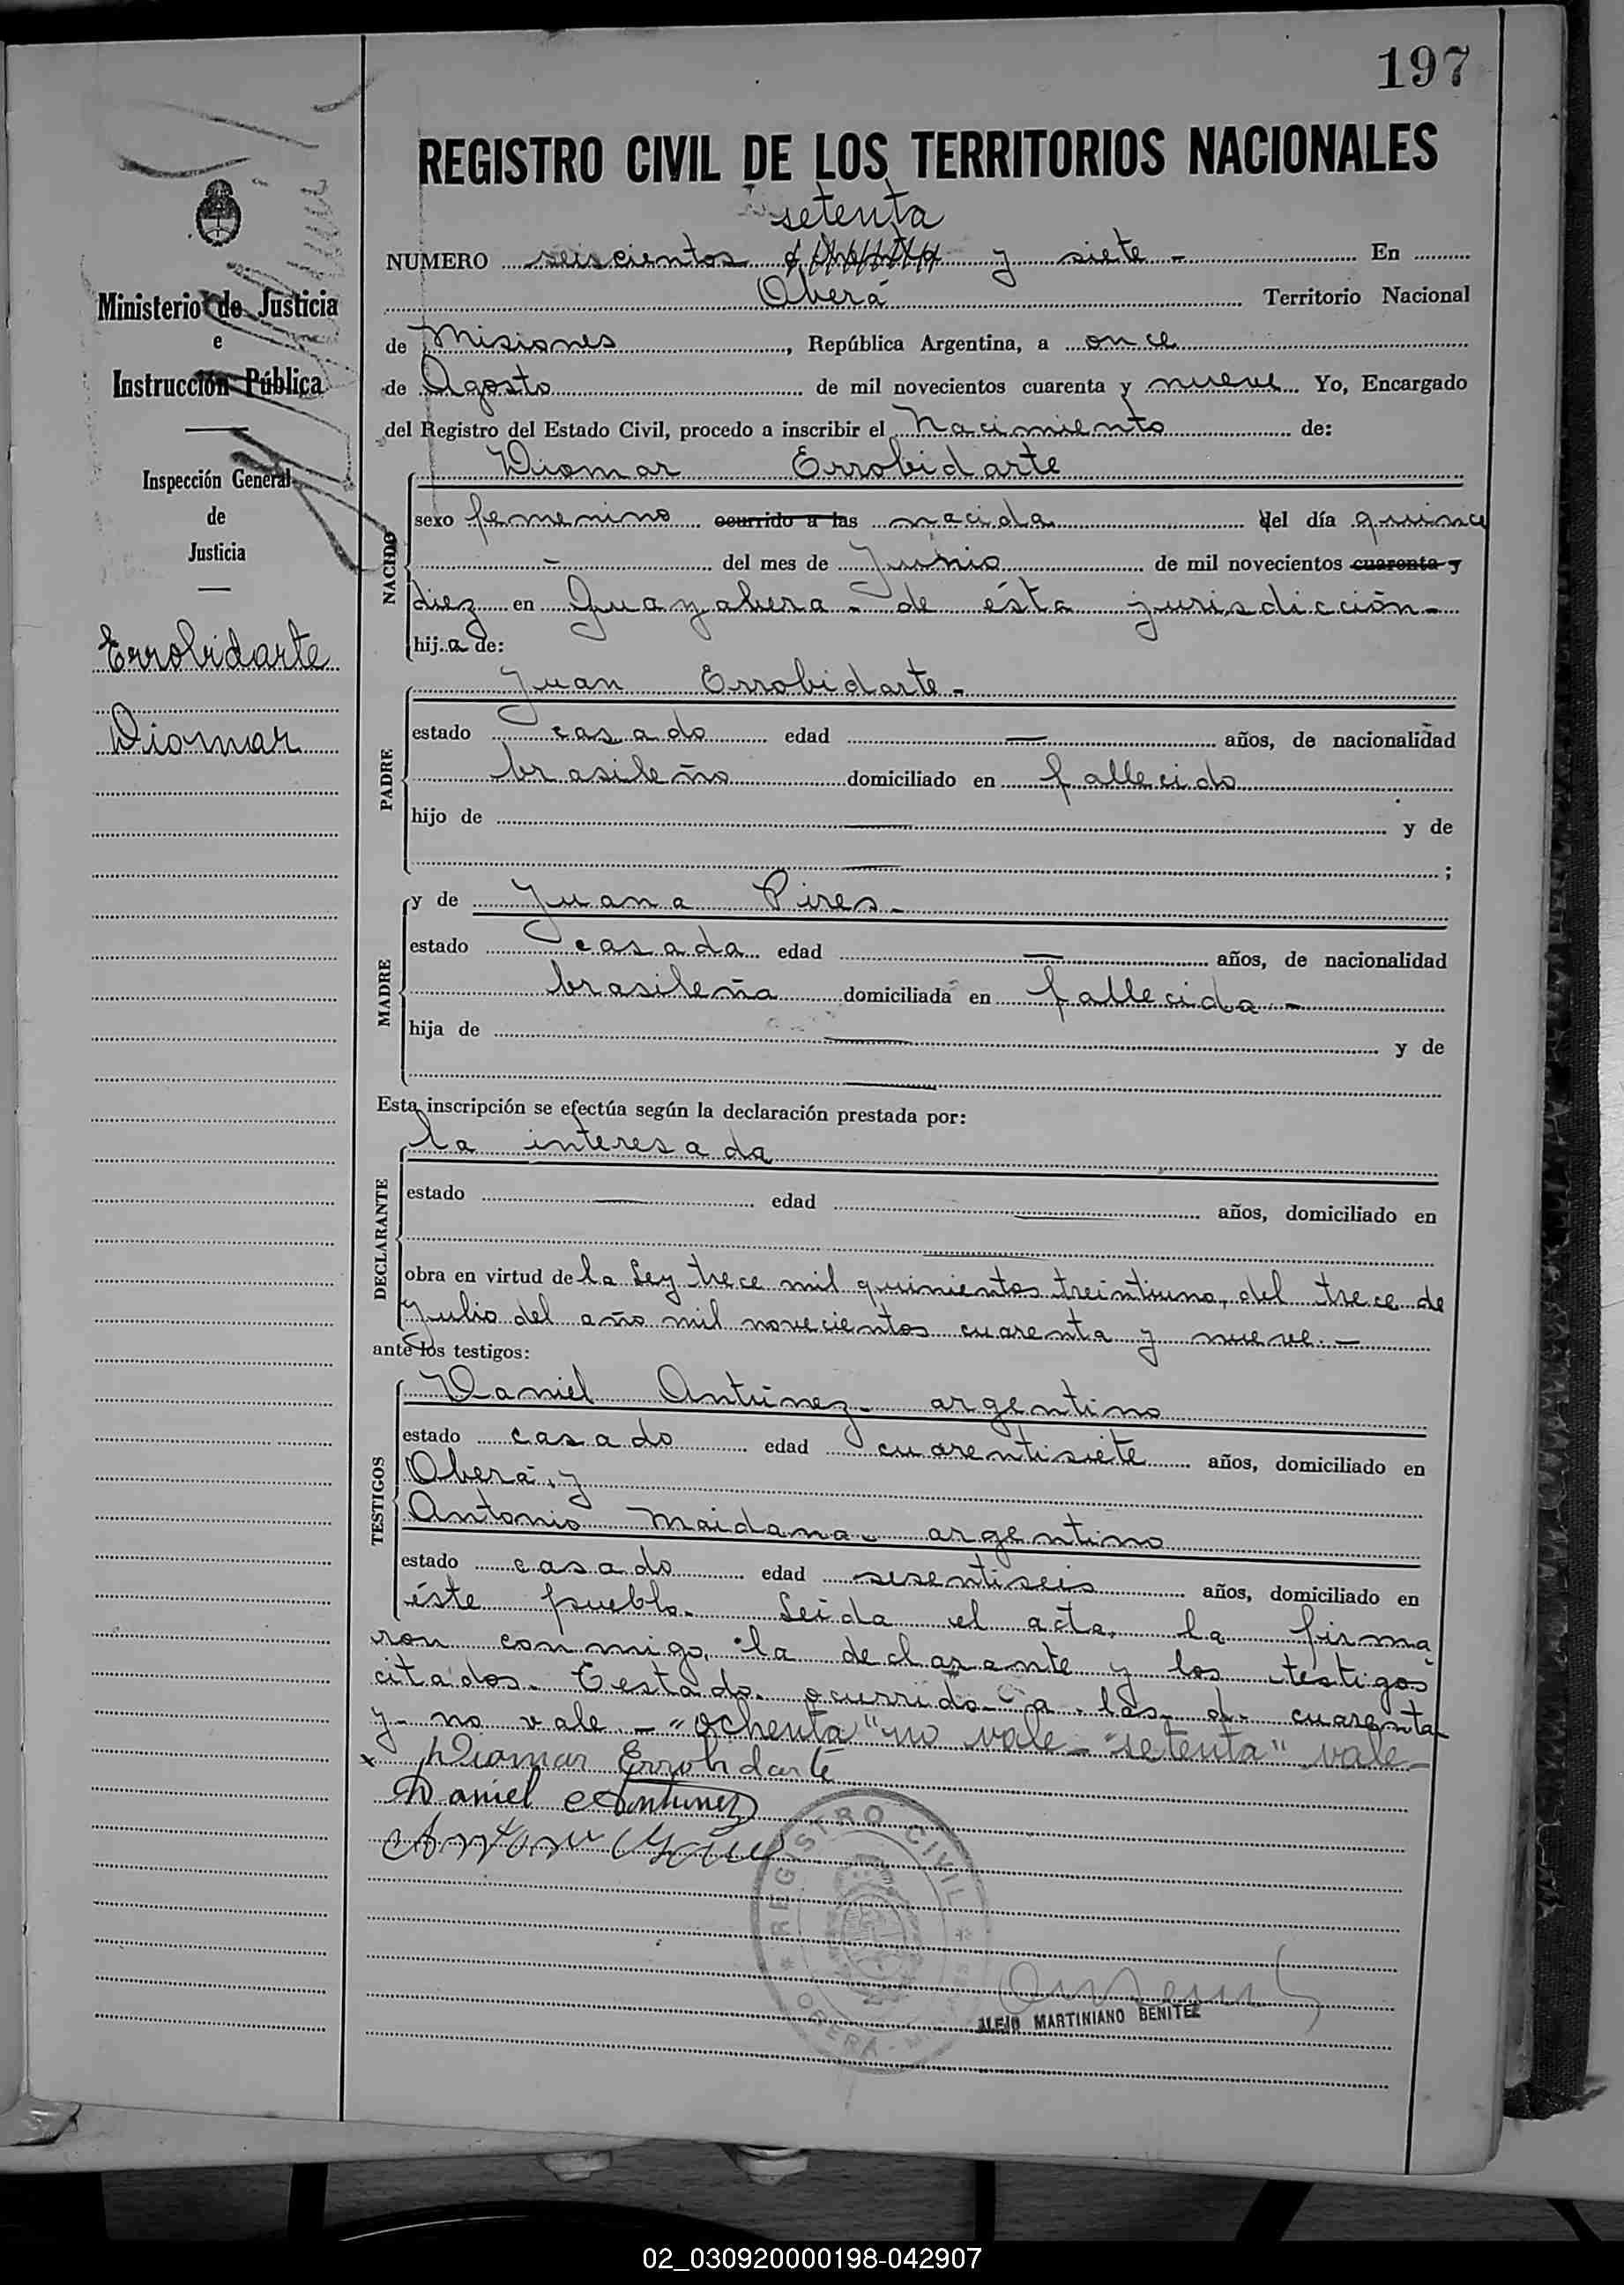 197
REGISTRO CIVIL DE LOS TERRITORIOS NACIONALES
setenta
NUMERO seiscientos ochenta y siete - En
Oberá Territorio Nacional
de Misiones, República Argentina, a once
de Agosto de mil novecientos cuarenta y nueve Yo, Encargado
del Registro del Estado Civil, procedo a inscribir el Nacimiento de:
Diomar Errobidarte
NACIDO
sexo femenino ocurrido a las nacida del día quince
- del mes de Junio de mil novecientos cuarenta y
diez en Guayabera - de ésta jurisdicción -
hija de:
Juan Errobidarte -
PADRE
estado casado edad — años, de nacionalidad
brasileño domiciliado en fallecido
hijo de — y de
— ;
MADRE
y de Juana Pires -
estado casada edad — años, de nacionalidad
brasileña domiciliada en fallecida -
hija de — y de
—
Esta inscripción se efectúa según la declaración prestada por:
DECLARANTE
la interesada
estado — edad — años, domiciliado en
—
obra en virtud de la Ley trece mil quinientos treintiuno, del trece de
Julio del año mil novecientos cuarenta y nueve. -
ante los testigos:
TESTIGOS
Daniel Antúnez - argentino
estado casado edad cuarentisiete años, domiciliado en
Oberá, y
Antonio Maidana - argentino
estado casado edad sesentiseis años, domiciliado en
éste pueblo. Leida el acta, la firma
ron conmigo, la declarante y los testigos
citados. Testado. ocurrido - a - las - d. cuarenta
y - no vale - "ochenta" no vale - "setenta" vale -
x Diomar Errobidarte
Daniel Antunez
REGISTRO CIVIL
OBERÁ -
ALEJO MARTINIANO BENITEZ
Ministerio de Justicia
e
Instrucción Pública
Inspección General
de
Justicia
Errobidarte
Diomar
02_030920000198-042907